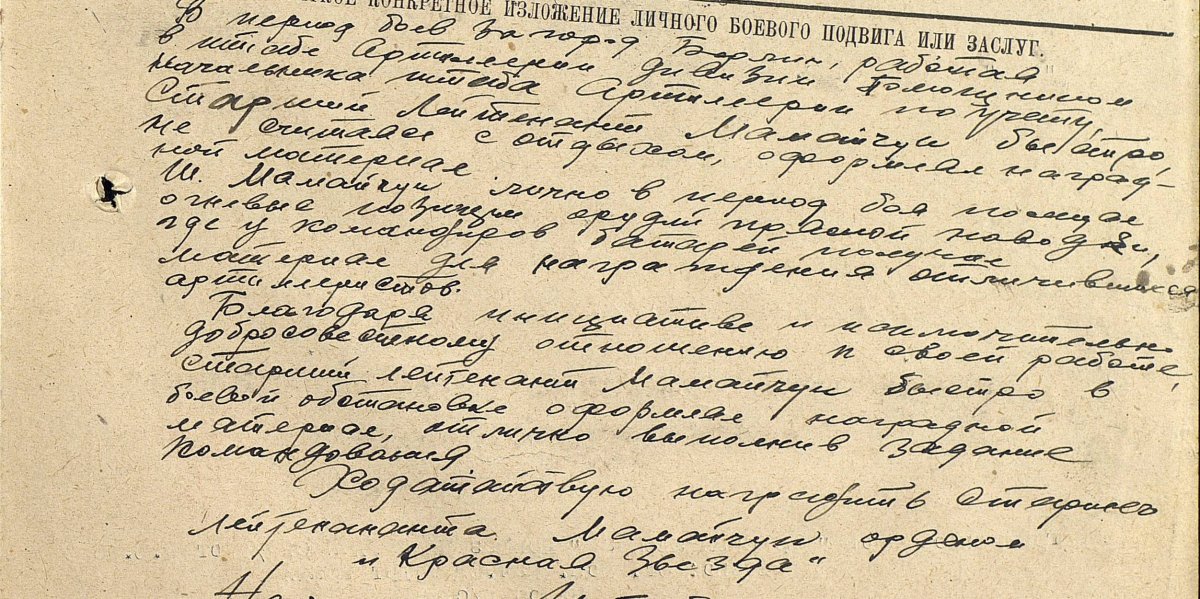 КОНКРЕТНОЕ ИЗЛОЖЕНИЕ ЛИЧНОГО БОЕВОГО ПОДВИГА ИЛИ ЗАСЛУГ.
В период боев за город Берлин, работая
в штабе Артиллерии дивизии Помощником
начальника штаба Артиллерии по учету,
Старший Лейтенант Мамайчук быстро,
не считаясь с отдыхом, оформлял наград-
ной материал
Ш. Мамайчук лично в период боя посещал
огневые позиции орудий прямой наводки,
где у командиров батарей получал
материал для награждения отличившихся
артиллеристов.
Благодаря инициативе и исключительно
добросовестному отношению к своей работе,
старший лейтенант Мамайчук быстро в
боевой обстановке оформлял наградной
материал, отлично выполнив задание
командования
Ходатайствую наградить Старшего
лейтенананта Мамайчук орденом
"Красная Звезда"